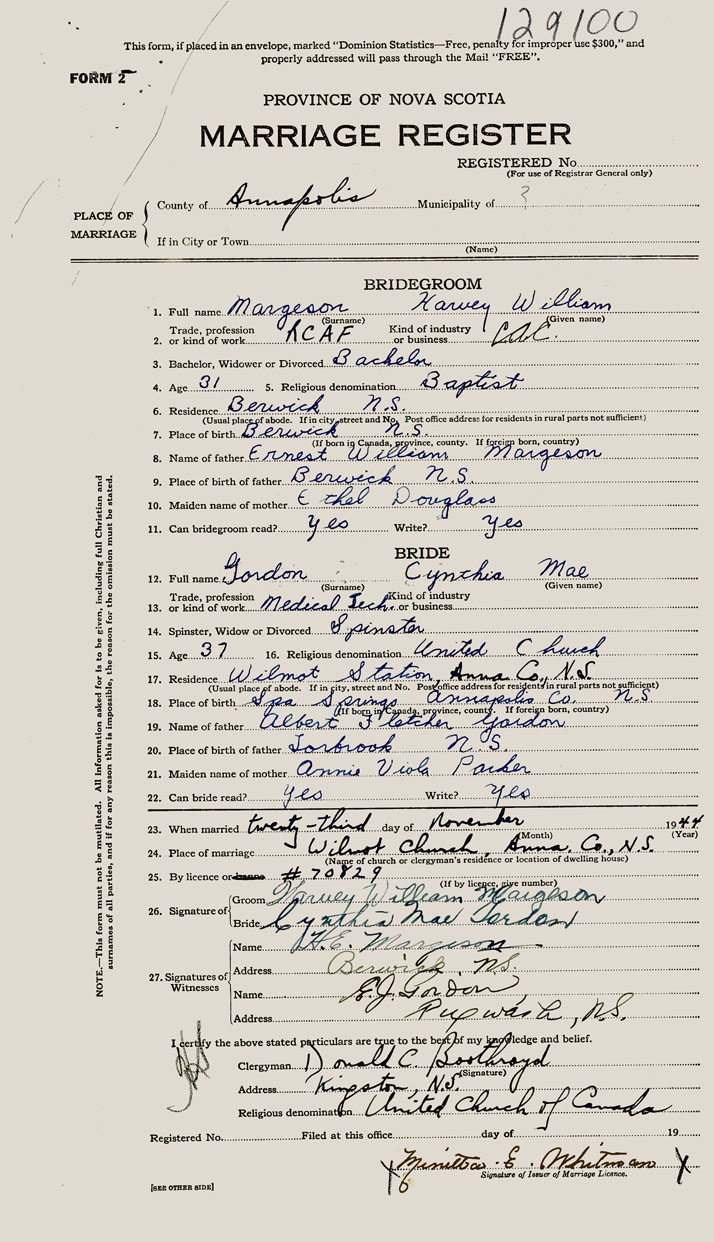 129100
This form, if placed in an envelope, marked "Dominion Statistics—Free, penalty for improper use $300," and
properly addressed will pass through the Mail "FREE".
FORM 2
PROVINCE OF NOVA SCOTIA
MARRIAGE REGISTER
REGISTERED No.
(For use of Registrar General only)
PLACE OF MARRIAGE
County of Annapolis Municipality of 3
If in City or Town
(Name)
BRIDEGROOM
1. Full name Margeson Harvey William
(Surname) (Given name)
2. Trade, profession or kind of work RCAF Kind of industry or business
3. Bachelor, Widower or Divorced Bachelor
4. Age 31 5. Religious denomination Baptist
6. Residence Berwick N.S.
(Usual place of abode. If in city, street and No. Post office address for residents in rural parts not sufficient)
7. Place of birth Berwick N.S.
(If born in Canada, province, county. If foreign born, country)
8. Name of father Ernest William Margeson
9. Place of birth of father Berwick N.S
10. Maiden name of mother Ethel Douglass
11. Can bridegroom read? Yes Write? Yes
BRIDE
12. Full name Gordon Cynthia Mae
(Surname) (Given name)
13. Trade, profession or kind of work Medical Tech. Kind of industry or business
14. Spinster, Widow or Divorced Spinster
15. Age 37 16. Religious denomination United Church
17. Residence Wilmot Station, Anna Co., N.S.
(Usual place of abode. If in city, street and No. Post office address for residents in rural parts not sufficient)
18. Place of birth Spa Springs Annapolis Co. N.S
(If born in Canada, province, county. If foreign born, country)
19. Name of father Albert Fletcher Gordon
20. Place of birth of father Torbrook N.S.
21. Maiden name of mother Annie Viola Parker
22. Can bride read? Yes Write? Yes
23. When married twenty-third day of November 1944
(Month) (Year)
24. Place of marriage Wilmot Church, Anna. Co., N.S.
(Name of church or clergyman's residence or location of dwelling house)
25. By licence or banns # 70829
(If by licence, give number)
26. Signature of
Groom Harvey William Margeson
Bride Cynthia Mae Gordon
27. Signatures of Witnesses
Name H.E. Margeson
Address Berwick, N.S.
Name E.J. Gordon
Address Pugwash, N.S.
I certify the above stated particulars are true to the best of my knowledge and belief.
Clergyman Donald C. Boothroyd
(Signature)
Address Kingston, N.S.
Religious denomination United Church of Canada
Registered No. Filed at this office day of 19
Minetta E. Whitman
Signature of Issuer of Marriage Licence.
[SEE OTHER SIDE]
NOTE.—This form must not be mutilated. All Information asked for is to be given, including full Christian and
surnames of all parties, and if for any reason this is impossible, the reason for the omission must be stated.